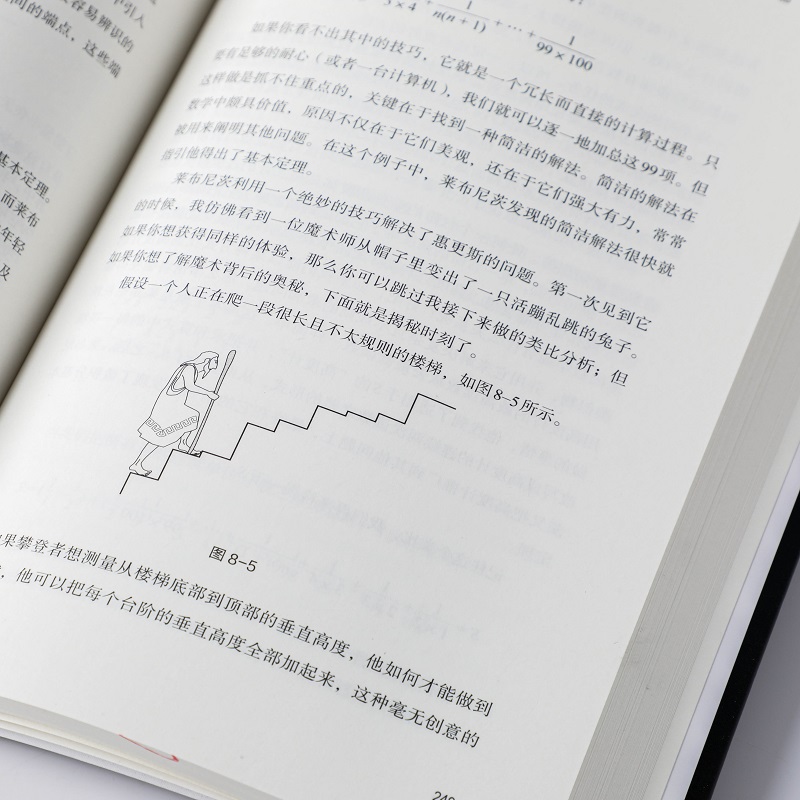 中引人
容易辨识的
间的端点，这些端
基本定理。
而莱布
年轻
及
3×4 + 1/n(n+1) + ⋯ + 1/99×100
如果你看不出其中的技巧，它就是一个冗长而直接的计算过程。只
要有足够的耐心（或者一台计算机），我们就可以逐一地加总这99项。但
这样做是抓不住重点的，关键在于找到一种简洁的解法。简洁的解法在
数学中颇具价值，原因不仅在于它们美观，还在于它们强大有力，常常
被用来阐明其他问题。在这个例子中，莱布尼茨发现的简洁解法很快就
指引他得出了基本定理。
莱布尼茨利用一个绝妙的技巧解决了惠更斯的问题。第一次见到它
的时候，我仿佛看到一位魔术师从帽子里变出了一只活蹦乱跳的兔子。
如果你想获得同样的体验，那么你可以跳过我接下来做的类比分析；但
如果你想了解魔术背后的奥秘，下面就是揭秘时刻了。
假设一个人正在爬一段很长且不太规则的楼梯，如图8-5所示。
图 8-5
果攀登者想测量从楼梯底部到顶部的垂直高度，他如何才能做到
，他可以把每个台阶的垂直高度全部加起来，这种毫无创意的